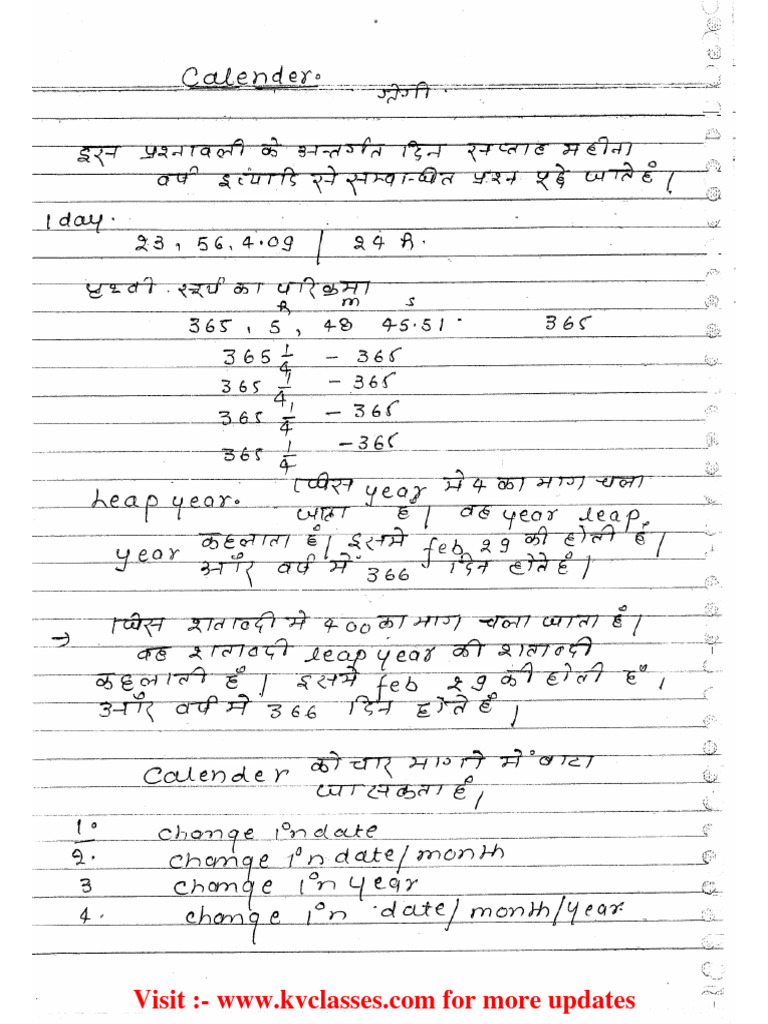 Calender.
श्रेणी.
इस प्रश्नावली के अन्तर्गत दिन सप्ताह महीना
वर्ष इत्यादि से सम्बन्धित प्रश्न पूछे जाते हैं।
1 day.
23, 56, 4.09 | 24 h.
पृथ्वी सूर्य का परिक्रमा
h m s
365, 5, 48 45.51. 365
365 1/4 - 365
365 1/4 - 365
365 1/4 - 365
365 1/4 - 365
Leap year. जिस year मे 4 का भाग चला
जाता है। वह year leap
year कहलाता हैं। इसमे feb 29 की होती हैं।
और वर्ष में 366 दिन होते हैं।
→ जिस शताब्दी मे 400 का भाग चला जाता हैं।
वह शताब्दी leap year की शताब्दी
कहलाती हैं। इसमे feb 29 की होती हैं।
और वर्ष मे 366 दिन होते हैं।
Calender को चार भागो में बाटा
जा सकता हैं।
1. change in date
2. change in date/month
3 change in year
4. change in date/month/year
Visit :- www.kvclasses.com for more updates